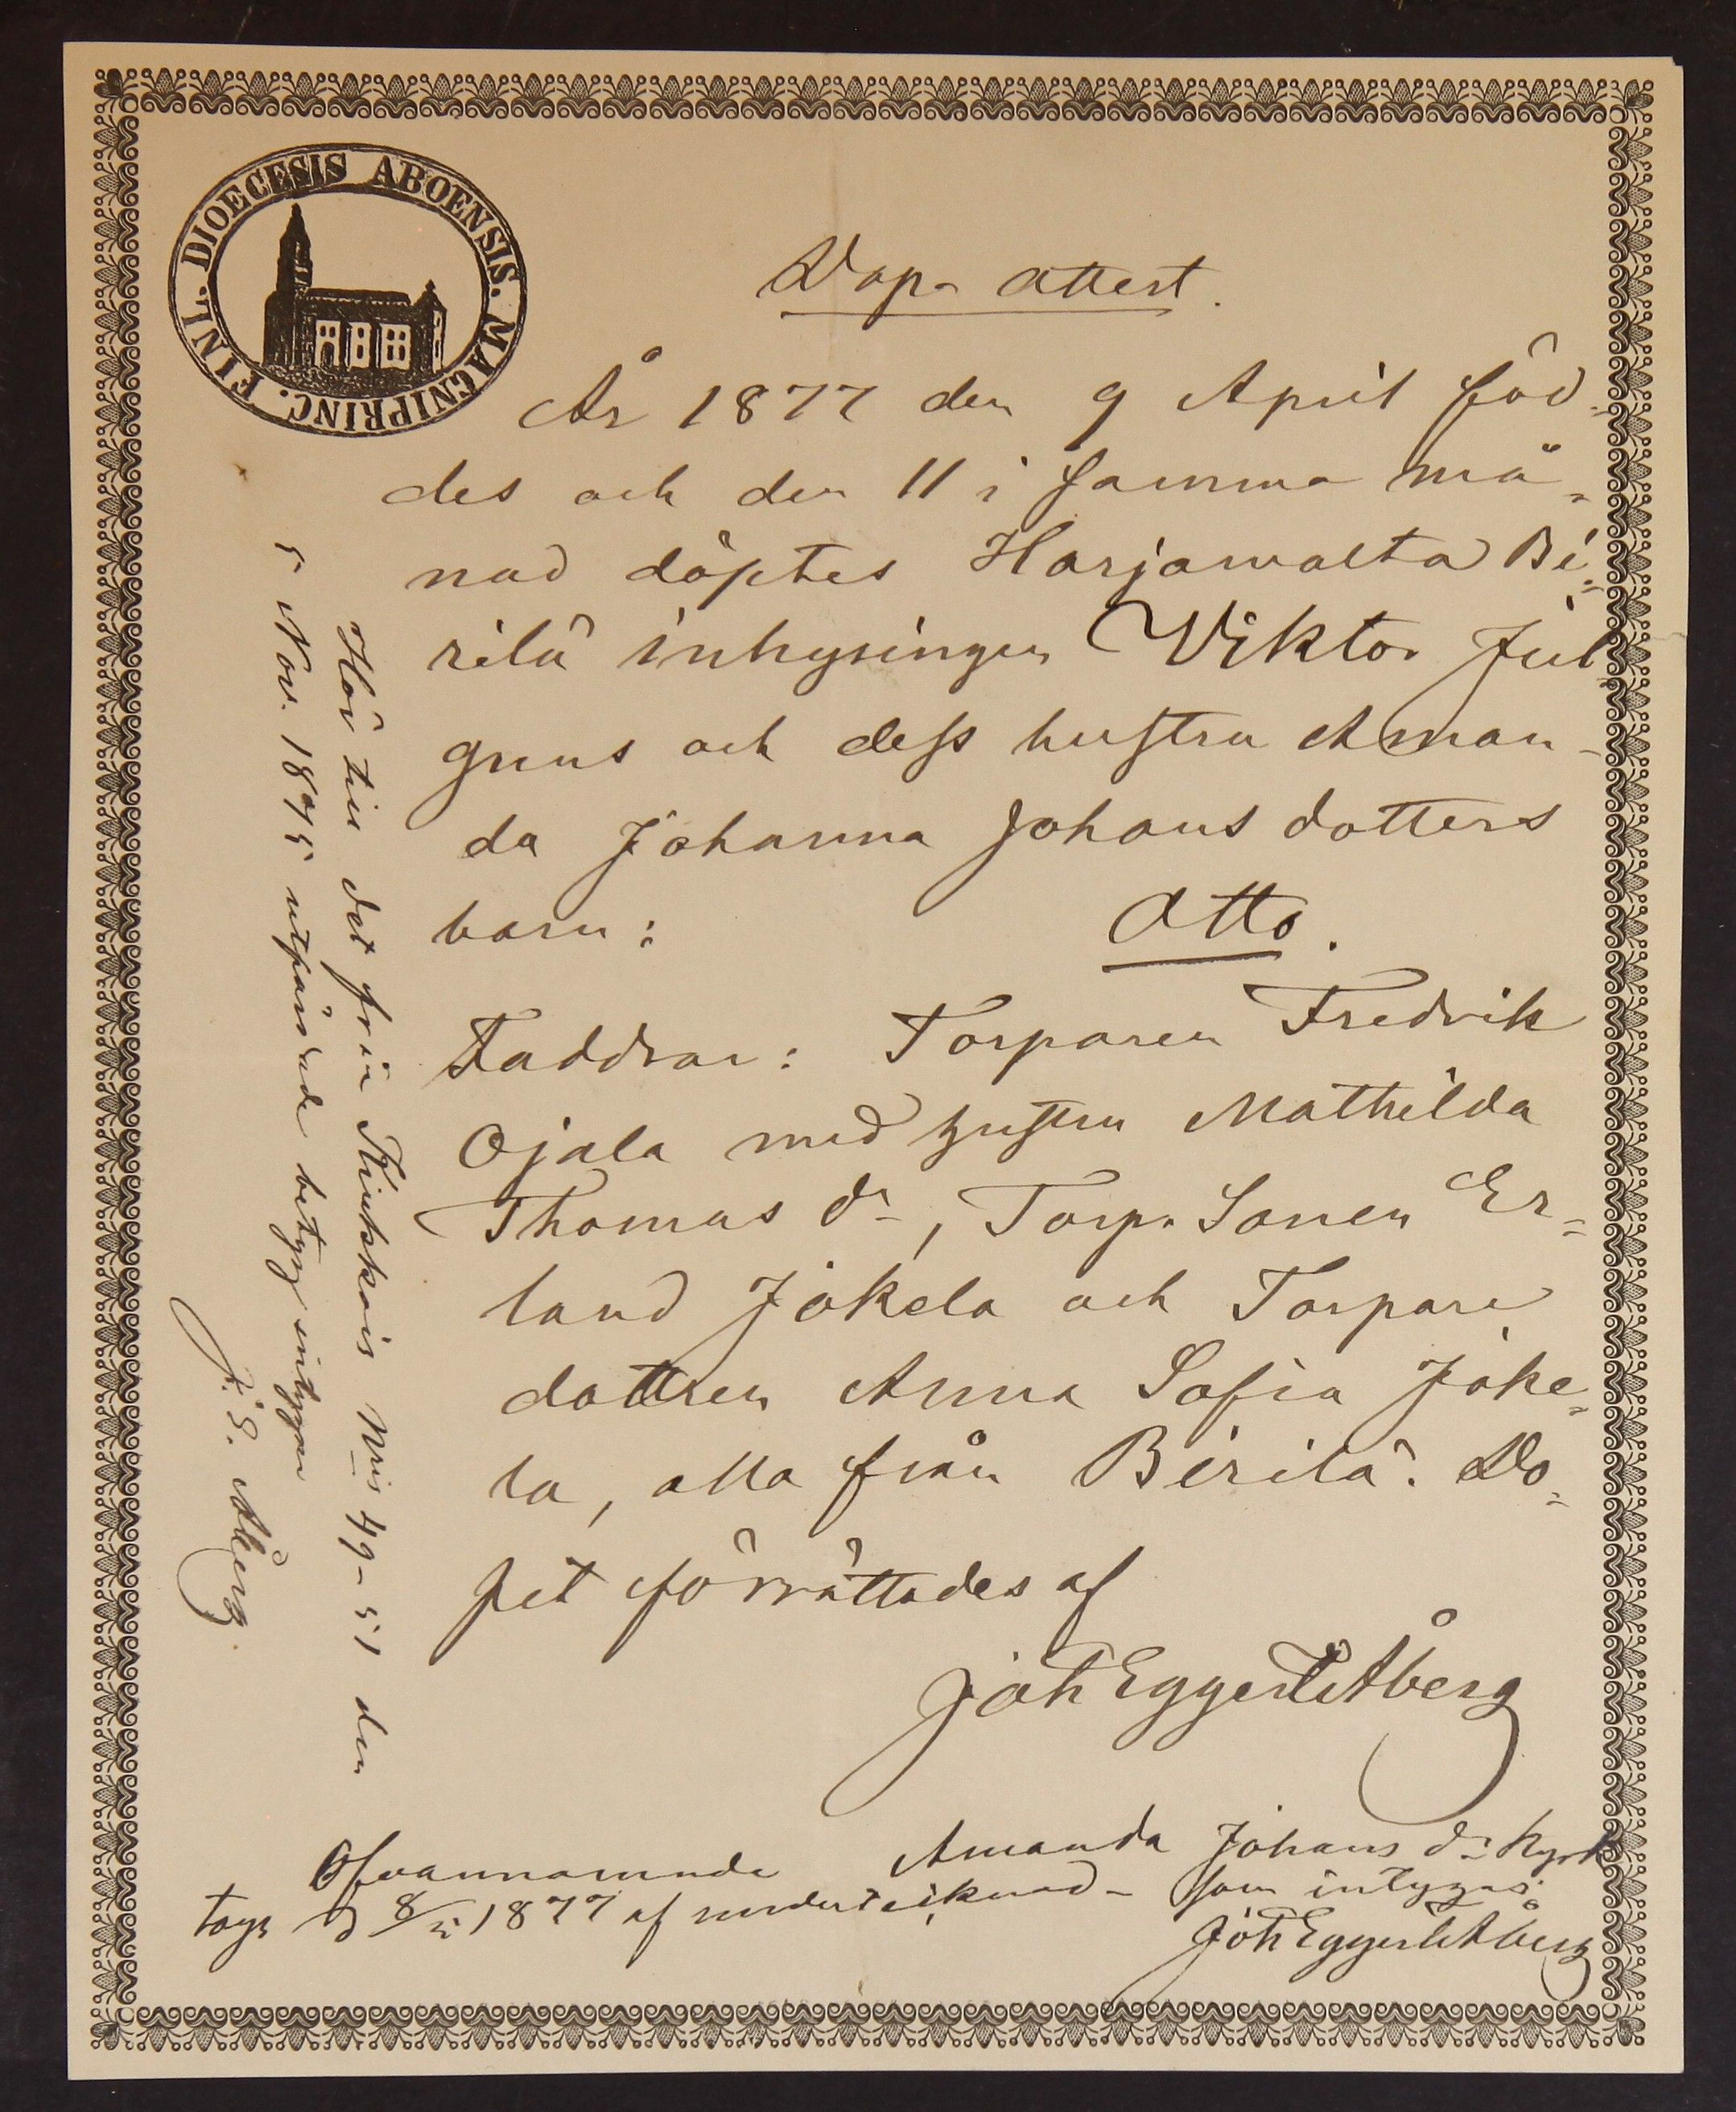 DIOECESIS ABOENSIS. MAGNIPRINC. FINL.
Dop- attest.
År 1877 den 9 April föd-
des och den 11 i samma må-
nad döptes Harjawalta Bi-
rilä inhysingen Viktor Jul-
grens och dess hustru Aman-
da Johanna Johans dotters
barn: Otto.
Faddrar: Torparen Fredrik
Ojala med hustru Mathilda
Thomas dr, Torp. Sonen Er-
land Jokela och Torpare
dottren Anna Sofia Joke-
la, alla från Birilä. Do-
pet förrättades af
Joh Eggert Åberg
Ofvannämnda Amanda Johans dr kyrk
togs d 8/5 1877 af undertecknad - som intygas:
Joh Eggert Åberg
Hör till det från Kiukkois Nris 49-51 den
5 Nov. 1875 betyg intygar
J. E. Åberg.